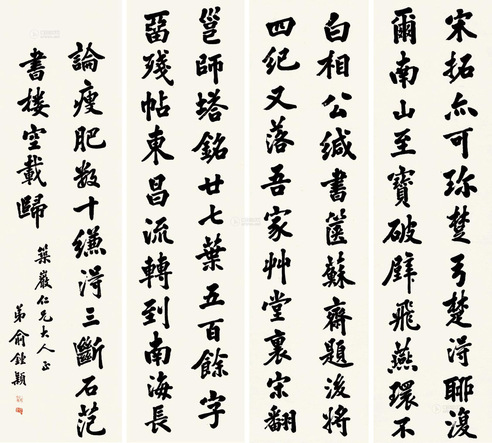 宋拓亦可珍楚弓楚得聊復
爾南山至寶破璧飛燕環不
白相公緘書篋蘇齋題後將
四紀又落吾家艸堂裏宋翻
邕師塔銘廿七葉五百餘字
留殘帖東昌流轉到南海長
論瘦肥数十縑得三斷石范
書樓空載歸
築巖仁兄大人正
弟俞鍾穎